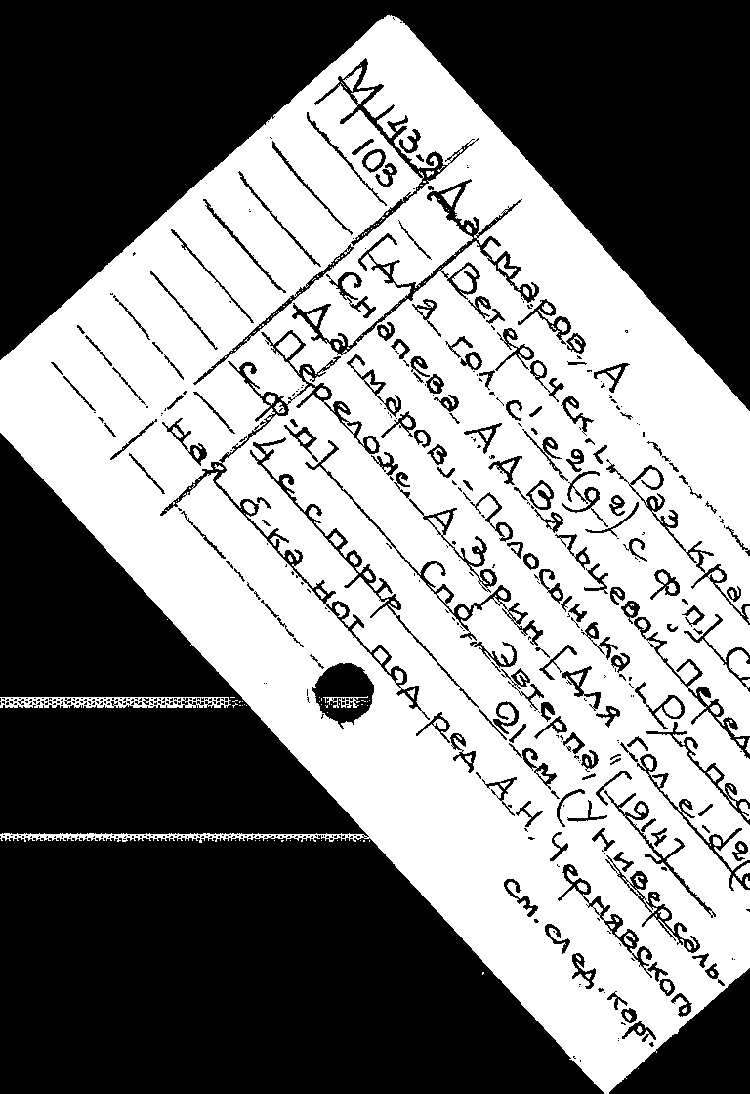 М 143-2
103
Дагмаров, А
Ветерочек. Раз крас
[Для гол. c¹-e2(g2) с ф-п] Сл.
С напева А.Д Вяльцевой. Перел.
Дагмаров, - Полосынька. Рус пес
Перелож. А. Зорин. [Для гол. e¹-d2(e
с ф-п] Спб, "Эвтерпа," [1914]
4 с. с портр. 21 см. (Универсаль-
ная б-ка нот под ред. А.Н. Чернявского
см. след. карт.